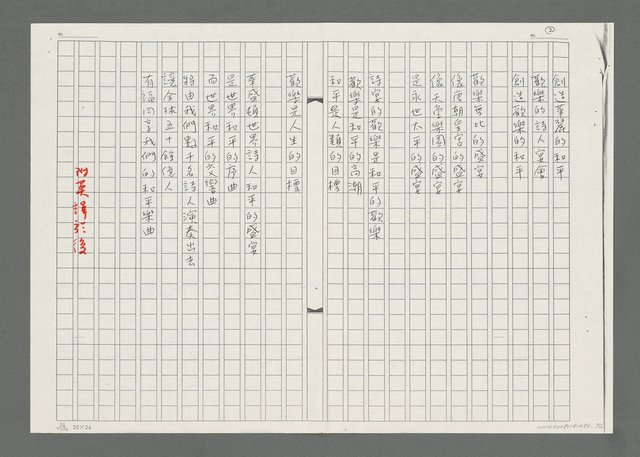 NO.
②
創造華麗的和平
歡樂的詩人宴會
創造歡樂的和平
歡樂無比的盛宴
像唐朝皇宮的盛宴
像天堂樂園的盛宴
是永世太平的盛宴
詩宴的歡樂是和平的歡樂
歡樂是和平的高潮
和平是人類的目標
NO.
歡樂是人生的目標
華盛頓世界詩人和平的盛宴
是世界和平的序曲
而世界和平的交響曲
將由我們數千名詩人演奏出去
讓全球五十餘億人
有福同享我們的和平樂曲
附英譯於後
25×24